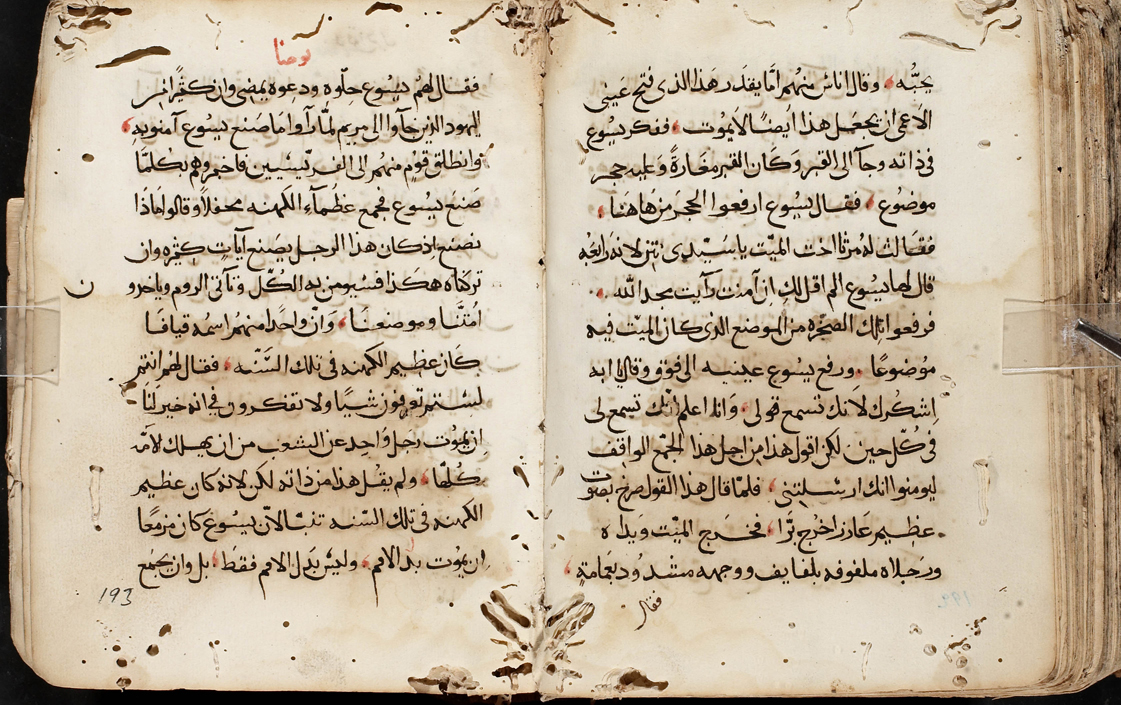 يحبّه، وقال اناس منهم اما يقدر هذا الذي فتح عيني
الاعمى ان يجعل هذا ايضًا لا يموت، ففكر يسوع
في ذاته وجآ الى القبر وكان القبر مغارةً وعليه حجر
موضوع، فقال يسوع ارفعوا الحجر من هاهنا،
فقالت له مرثا اخت الميّت يا سيّدي نتن لانه رابعه
قال لها يسوع الم اقل لكِ ان آمنت رآيت مجد الله.
فرفعوا تلك الصخره من الموضع الذي كان الميّت فيه
موضوعًا. ورفع يسوع عينيه الى فوق وقال يا ابه
اشكرك لانك تسمع قولي. وانا اعلم انك تسمع لي
في كلّ حين لكن اقول هذا من اجل هذا الجمع الواقف
ليومنوا انك ارسلتني، فلمّا قال هذا القول صرخ بصوت
عظيم عازر اخرج برّا، فخرج الميّت ويداه
ورجلاه ملفوفه بلفايف ووجهه مشدود بعمامةٍ،
فقال
يوحنا
فقال لهم يسوع حلّوه ودعوه يمضي وان كثيرًا من
اليهود الذين جآوا الى مريم لمّا رآوا ما صنع يسوع آمنوا به،
وانطلق قوم منهم الى الفريسيين فاخبروهم بكلما
صنع يسوع فجمع عظمآء الكهنه محفلاً وقالوا ماذا
نصنع اذ كان هذا الرجل يصنع آيات كثيره وان
تركناه هكذا فسيومن به الكلّ وتآتي الروم وياخذو
ن
امّتنا وموضعنا، وانّ واحدًا منهم اسمه قيافا
كان عظيم الكهنه في تلك السّنه، فقال لهم انتم
لستم تعرفون شيًا ولا تفكرون في انه خير لنا
ان يموت رجل واحد عن الشعب من ان يهلك الامّه
كلها، ولم يقل هذا من ذاته لكن لانه كان عظيم
الكهنه في تلك السّنه تنبّا لانّ يسوع كان مزمعًا
ان يموت بدل الامم، وليس بدل الامم فقط، بل وان يجمع
193